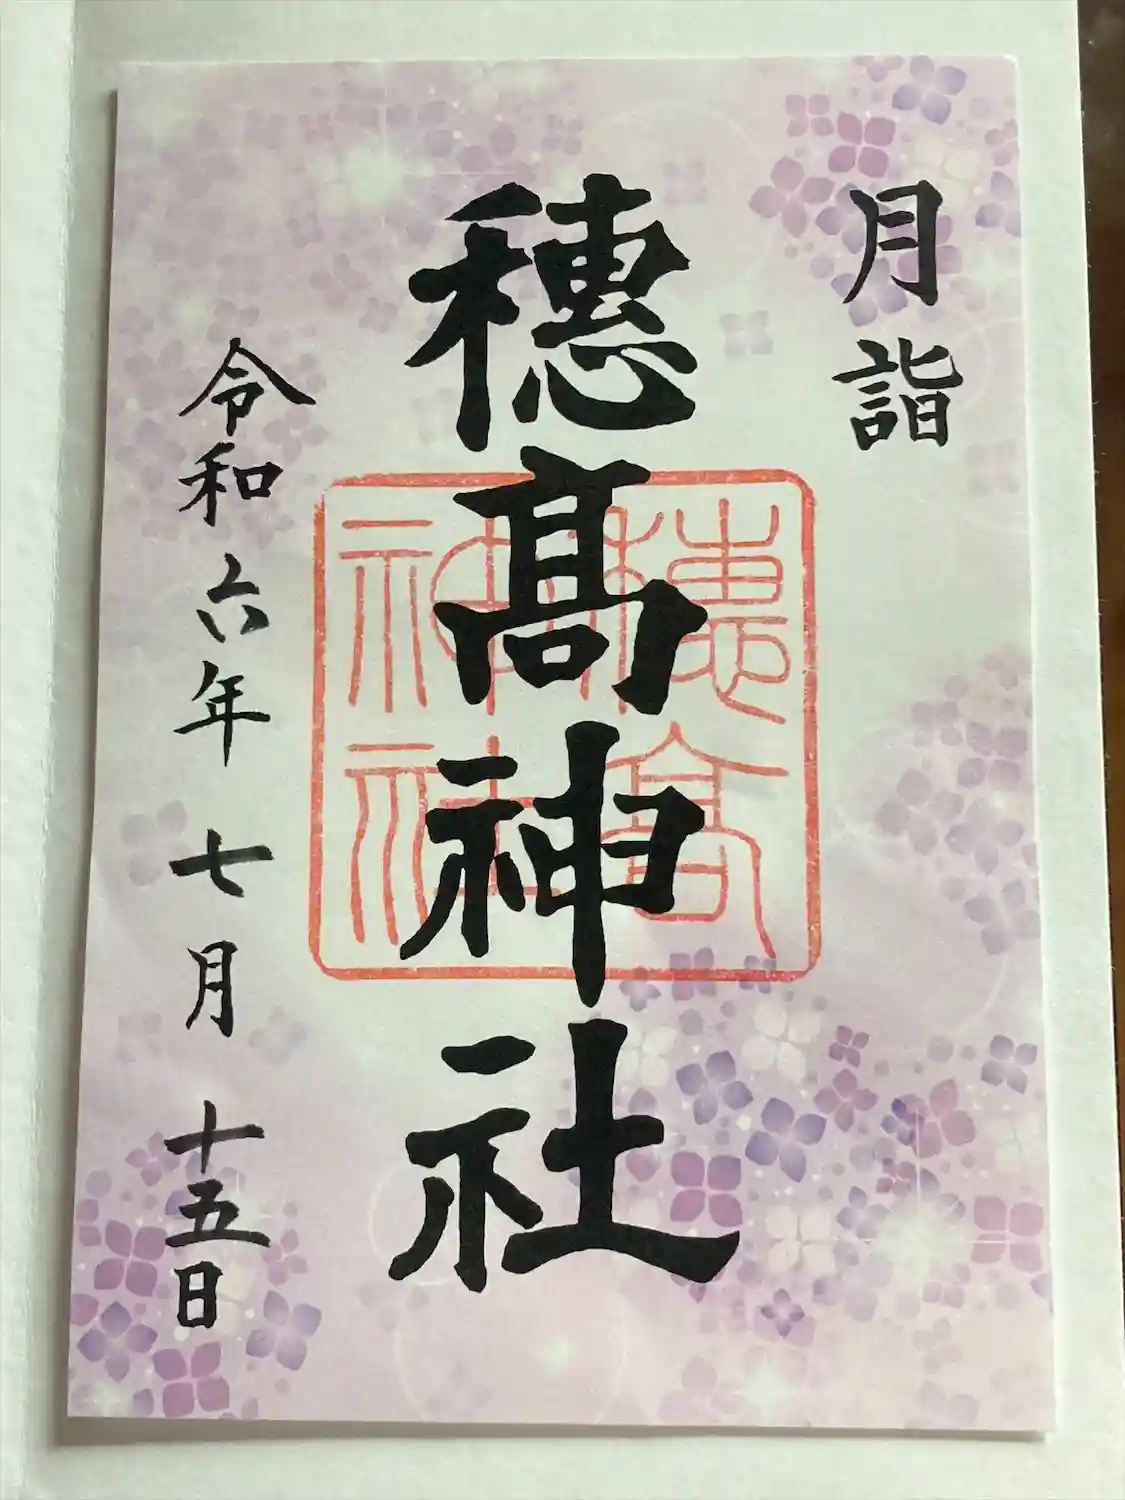 月詣
穂髙神社
穂髙
神社
令和六年七月十五日